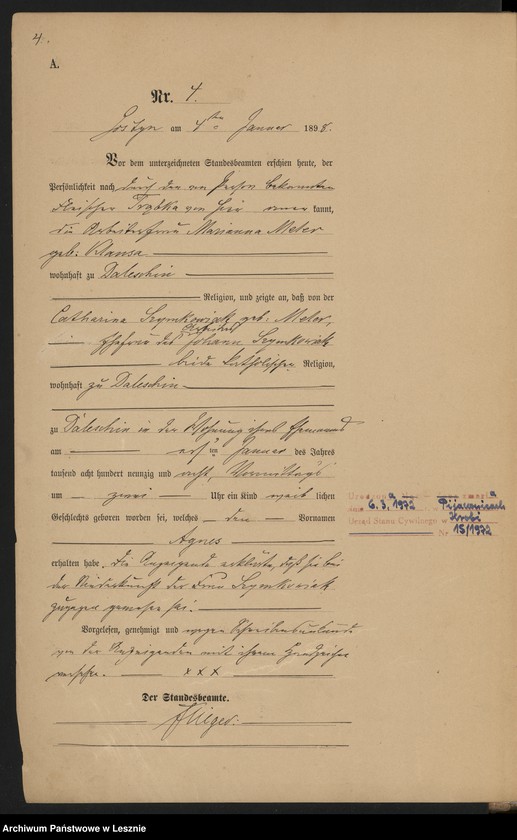 4.
A.
Nr. 4.
Gostyn am 4ten Januar 1898.
Vor dem unterzeichneten Standesbeamten erschien heute, der
Persönlichkeit nach durch den von Person bekannten
Fleischer von hier kannt,
die Arbeiterfrau Marianna Meler
geb:
wohnhaft zu Daleschin
Religion, und zeigte an, daß von der
Catharina Szymkowiak geb: Meler,
Ehefrau des Arbeiters Johann Szymkowiak
beide katholischer Religion,
wohnhaft zu Daleschin
zu Daleschin in der Wohnung ihres Ehemanns
am Januar des Jahres
tausend acht hundert neunzig und acht, Vormittags
um zwei Uhr ein Kind weiblichen
Geschlechts geboren worden sei, welches den Vornamen
Agnes
erhalten habe. Die Anzeigende erklärte, daß sie bei
der Niederkunft der Frau Szymkowiak
zugegen gewesen sei.
Vorgelesen, genehmigt und wegen Schreibensunkunde
von der Anzeigenden mit ihrem Handzeichen
versehen. x x x
Der Standesbeamte.
6.3.1972
Urząd Stanu Cywilnego w
Nr 15/1972
Archiwum Państwowe w Lesznie